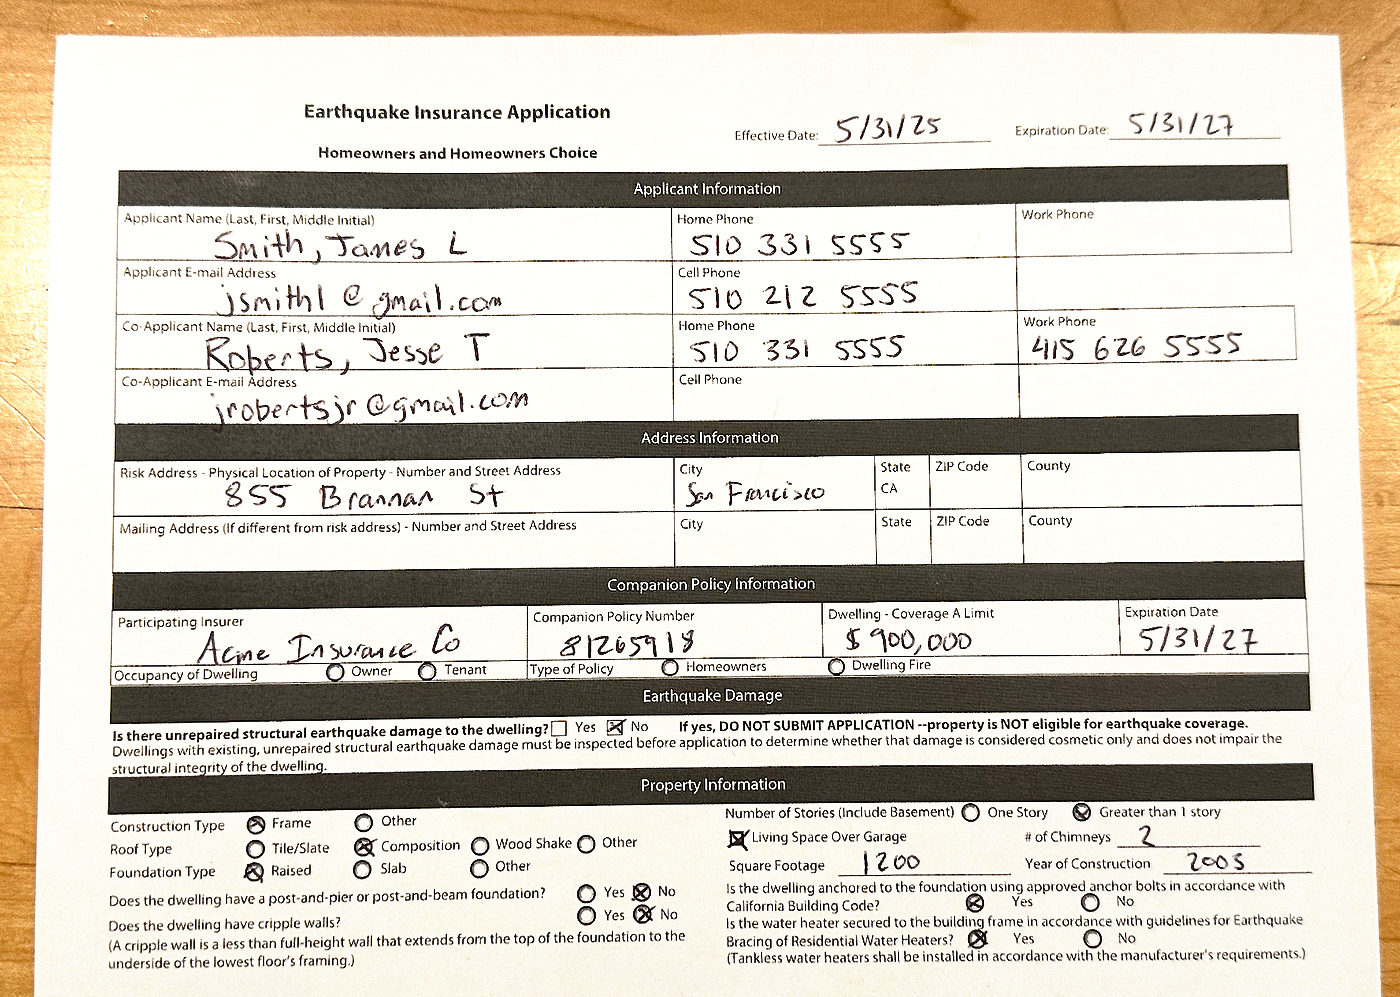 Earthquake Insurance Application
Effective Date: 5/31/25 Expiration Date: 5/31/27
Homeowners and Homeowners Choice
Applicant Information
Applicant Name (Last, First, Middle Initial) Home Phone Work Phone
Smith, James L 510 331 5555
Applicant E-mail Address Cell Phone
jsmith1@gmail.com 510 212 5555
Co-Applicant Name (Last, First, Middle Initial) Home Phone Work Phone
Roberts, Jesse T 510 331 5555 415 626 5555
Co-Applicant E-mail Address Cell Phone
jrobertsjr@gmail.com
Address Information
Risk Address - Physical Location of Property - Number and Street Address City State ZIP Code County
855 Brannan St San Francisco CA
Mailing Address (If different from risk address) - Number and Street Address City State ZIP Code County
Companion Policy Information
Participating Insurer Companion Policy Number Dwelling - Coverage A Limit Expiration Date
Acme Insurance Co 81265918 $900,000 5/31/27
Occupancy of Dwelling Owner Tenant Type of Policy Homeowners Dwelling Fire
Earthquake Damage
Is there unrepaired structural earthquake damage to the dwelling? Yes No If yes, DO NOT SUBMIT APPLICATION --property is NOT eligible for earthquake coverage.
Dwellings with existing, unrepaired structural earthquake damage must be inspected before application to determine whether that damage is considered cosmetic only and does not impair the
structural integrity of the dwelling.
Property Information
Construction Type Frame Other
Roof Type Tile/Slate Composition Wood Shake Other
Foundation Type Raised Slab Other
Does the dwelling have a post-and-pier or post-and-beam foundation? Yes No
Does the dwelling have cripple walls? Yes No
(A cripple wall is a less than full-height wall that extends from the top of the foundation to the
underside of the lowest floor's framing.)
Number of Stories (Include Basement) One Story Greater than 1 story
Living Space Over Garage # of Chimneys 2
Square Footage 1200 Year of Construction 2005
Is the dwelling anchored to the foundation using approved anchor bolts in accordance with
California Building Code? Yes No
Is the water heater secured to the building frame in accordance with guidelines for Earthquake
Bracing of Residential Water Heaters? Yes No
(Tankless water heaters shall be installed in accordance with the manufacturer's requirements.)